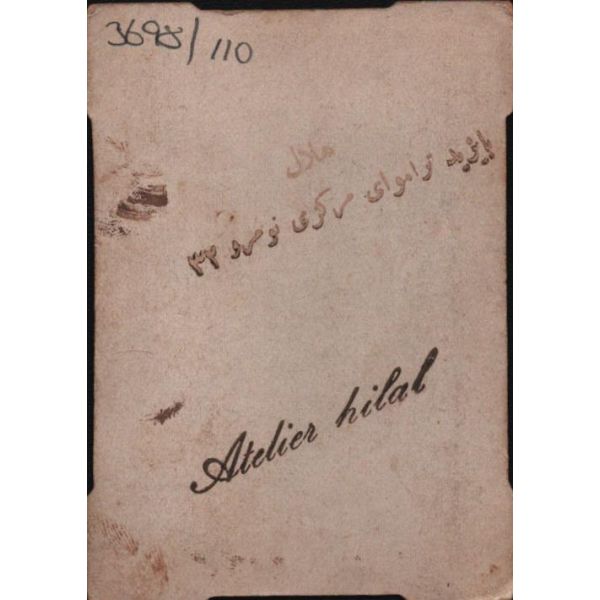 3698/110
هلال
بايزيد تراموای مركزی نومرو ٣٣
Atelier hilal